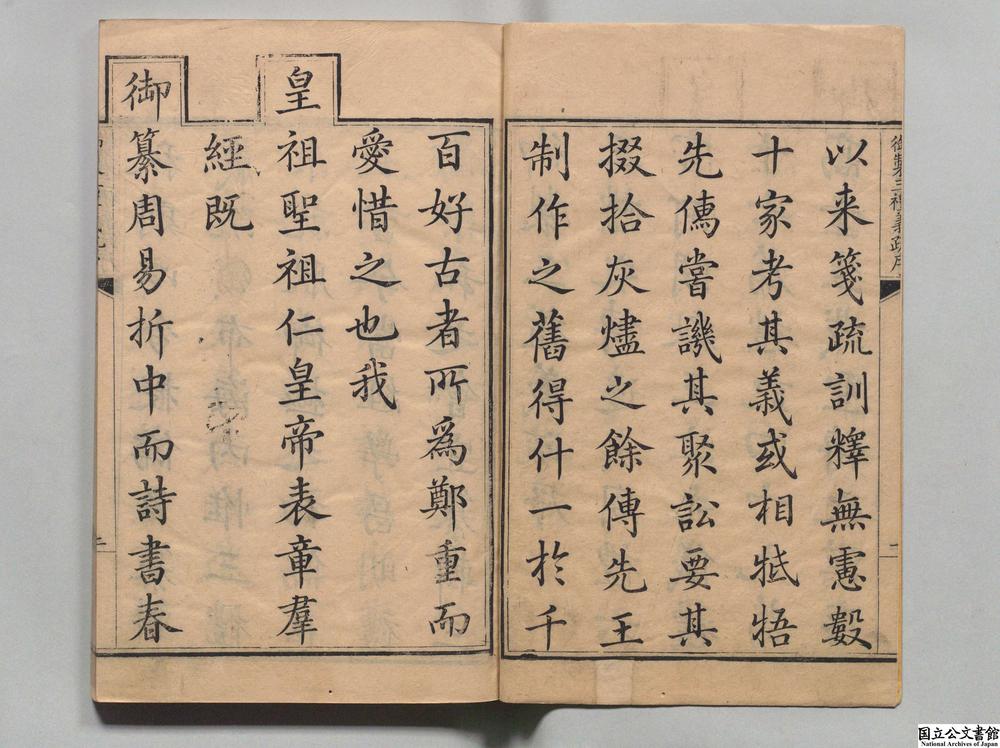 御製三禮義疏序
以来箋疏訓釋無慮數
十家考其義或相牴牾
先儒嘗譏其聚訟要其
掇拾灰燼之餘傳先王
制作之舊得什一於千
百好古者所為鄭重而
愛惜之也我
皇
祖聖祖仁皇帝表章羣
經既
御
纂周易折中而詩書春
国立公文書館
National Archives of Japan